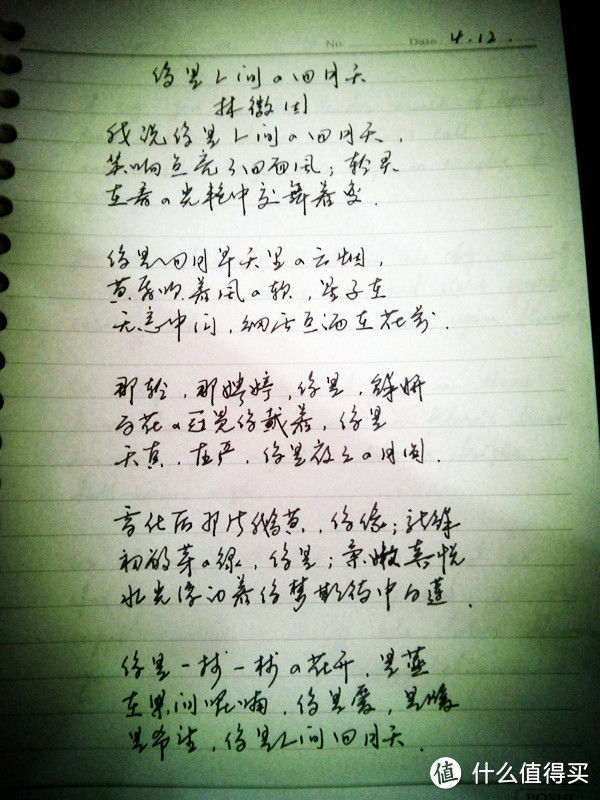 No. Date 4.12.
你是人间的四月天
林徽因
我说你是人间的四月天,
笑响点亮了四面风;轻灵
在春的光艳中交舞着变.
你是四月早天里的云烟,
黄昏吹着风的软,星子在
无意中闪,细雨点洒在花前.
那轻,那娉婷,你是,鲜妍
百花的冠冕你戴着,你是
天真,庄严,你是夜夜的月圆.
雪化后那片鹅黄,你像;新鲜
初放芽的绿,你是;柔嫩喜悦
水光浮动着你梦期待中白莲.
你是一树一树的花开,是燕
在梁间呢喃,你是爱,是暖
是希望,你是人间四月天.
值 什么值得买